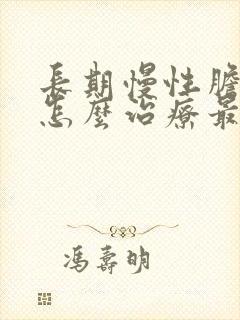 長期慢性膽
怎麼治療最
馮壽明